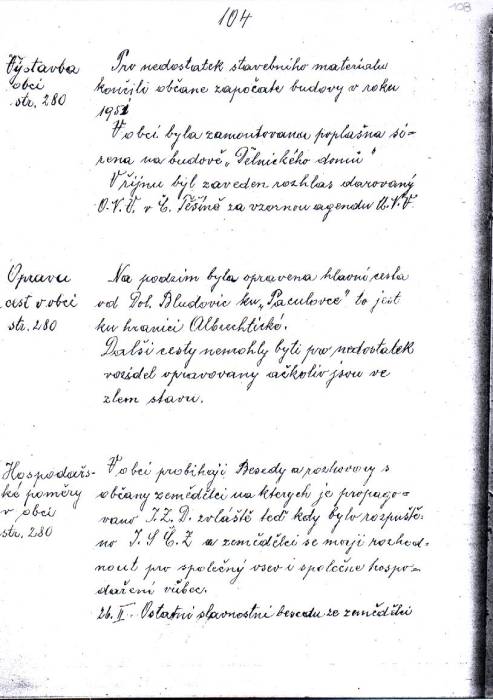 104
108
Výstavba
obcí
str. 280
Pro nedostatek stavebního materialu
končili občane započate budovy v roku
1951
V obci byla zamontovana poplašna si-
rena na budově „Dělnického domů"
V říjnu byl zaveden rozhlas darovaný
O.N.V. v Č. Těšíně za vzornou agendu M.N.V.
Oprava
cest v obci
str. 280
Na podzim byla opravena hlavní cesta
od Dol. Bludovic ku „Paculovce" to jest
ku hranici Albrechtické.
Další cesty nemohly byti pro nedostatek
vozidel opravovany ačkoliv jsou ve
zlem stavu.
Hospodářs-
ké poměry
v obci
str. 280
V obci probihaji Besedy a rozhovory s
občany zemědělci na kterych je propago-
vano J.Z.D. zvláště teď kdy bylo rozpuště-
no J.S.Č.Z a zemědělci se maji rozhod-
nout pro společný vsev i společne hospo-
daření vůbec.
26. II. Ostatní slavnostní besedu ze zemědělci